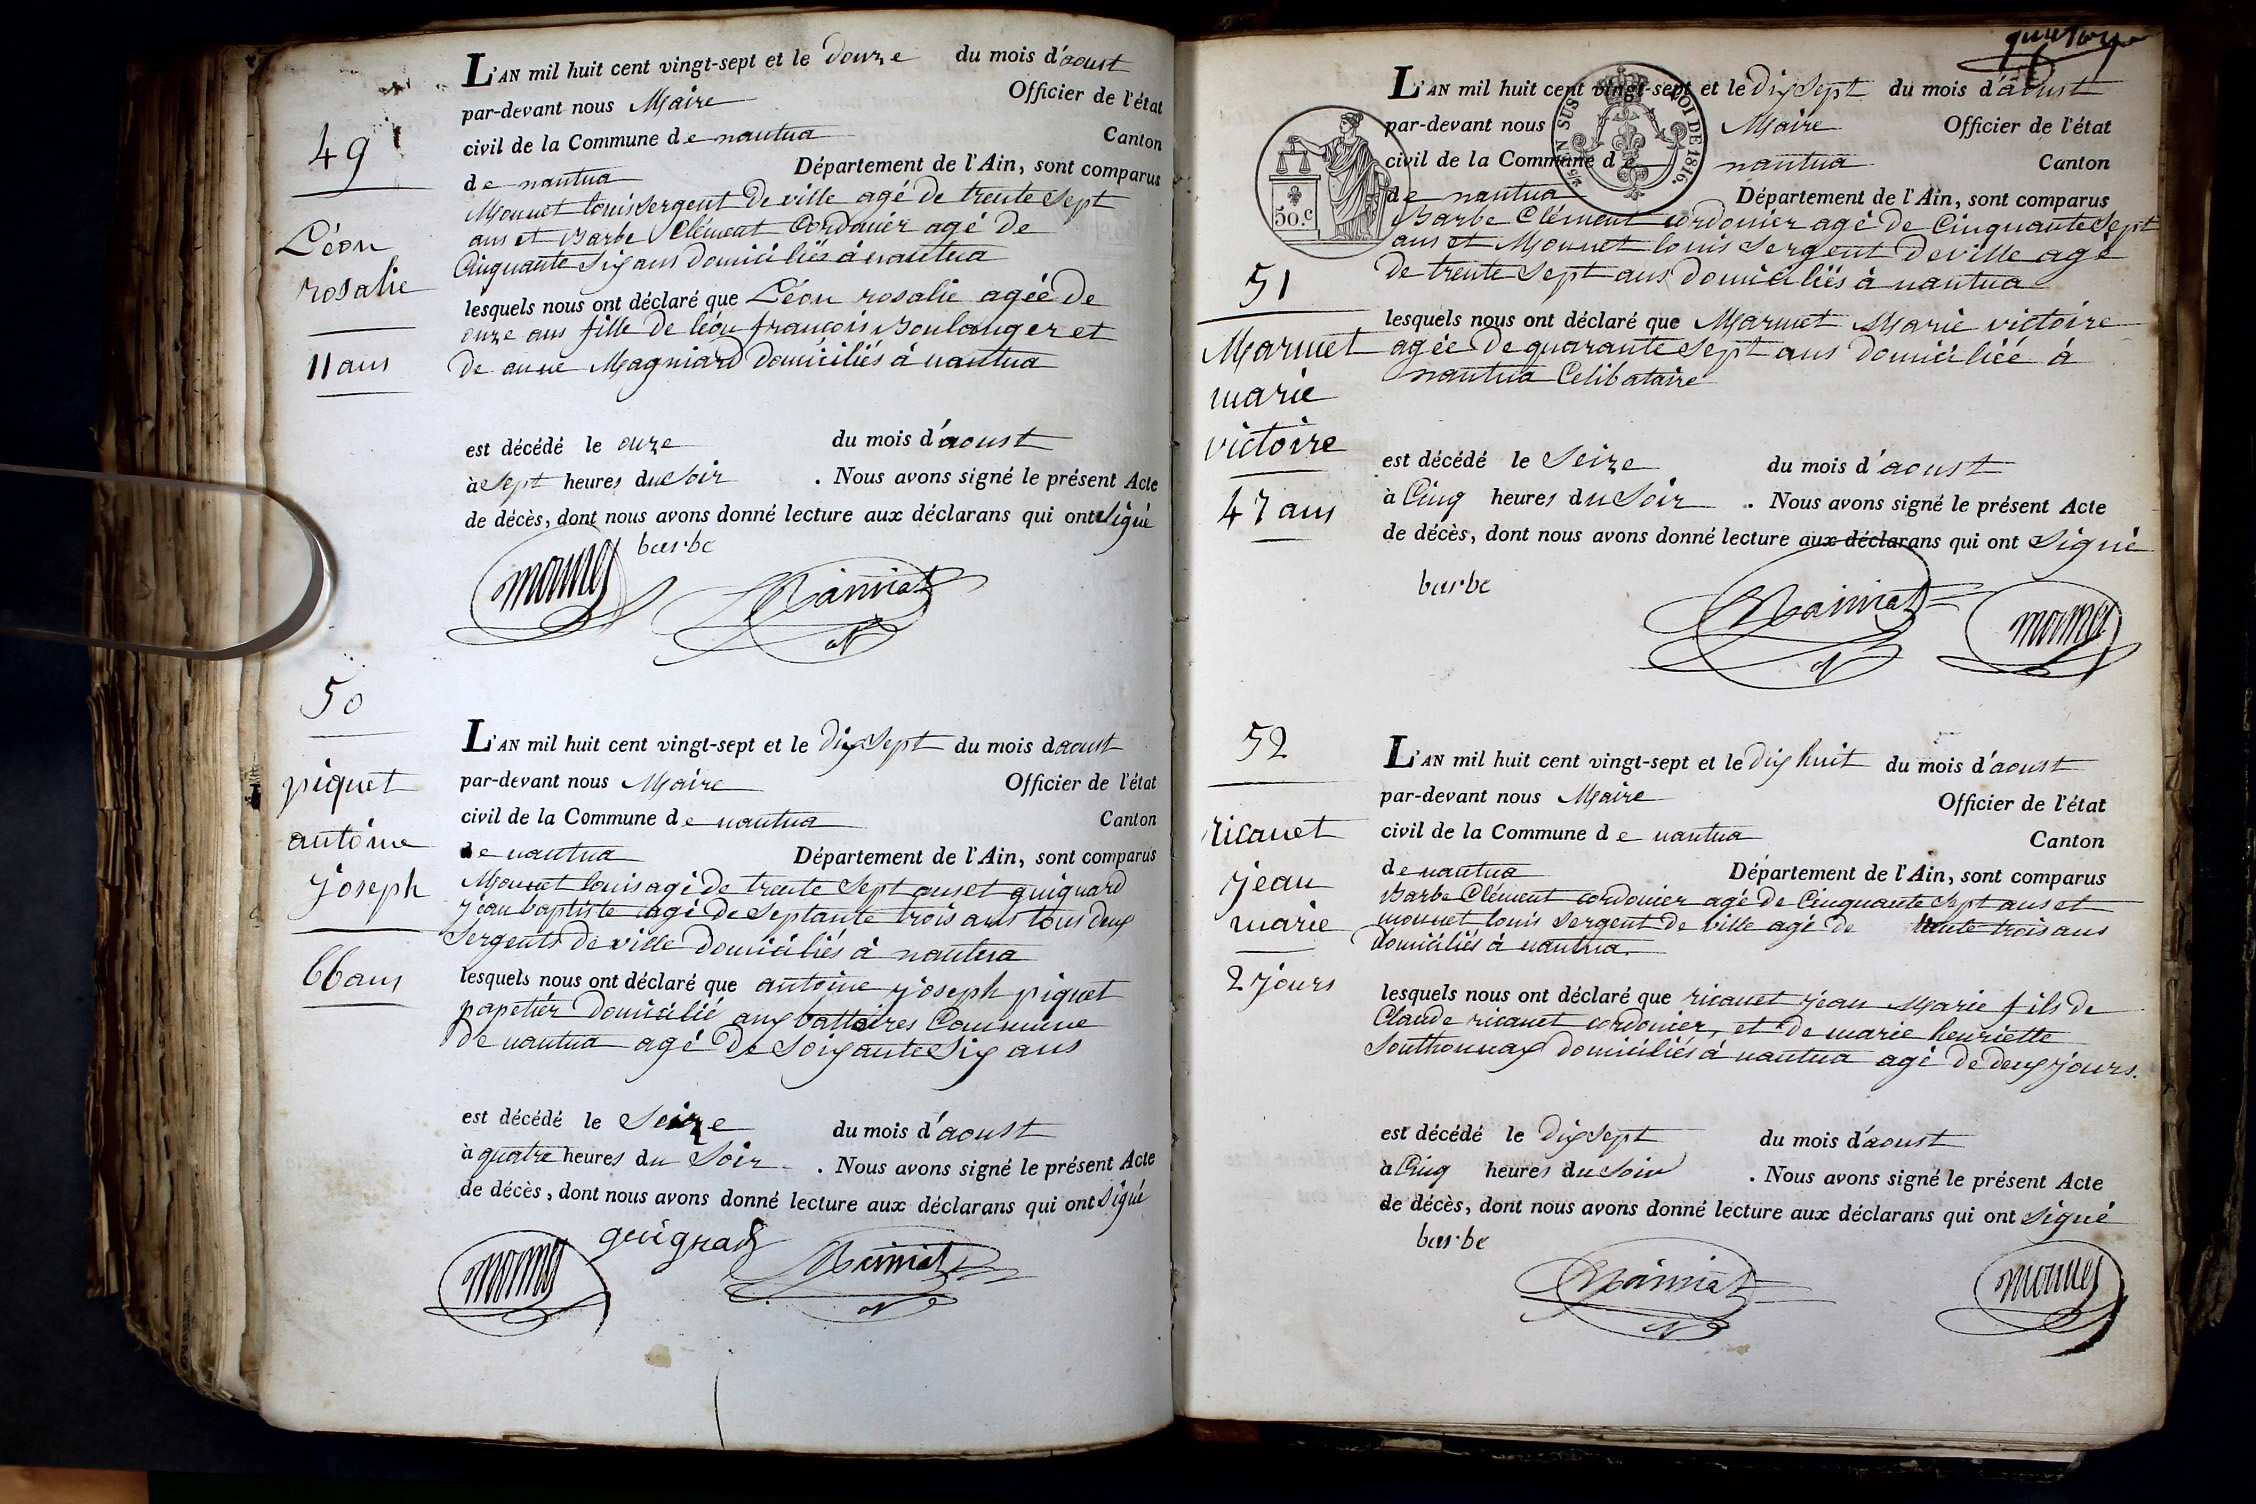 49
Léon
rosalie
11 ans
L'AN mil huit cent vingt-sept et le douze du mois d'aoust
par-devant nous Maire Officier de l'état
civil de la Commune de nantua Canton
de nantua Département de l'Ain, sont comparus
Monnet louis sergent de ville agé de trente sept
ans et Barbe Clément Cordonier agé de
Cinquante Six ans domiciliés à nantua
lesquels nous ont déclaré que Léon rosalie agée de
onze ans fille de léon françois Boulanger et
de anne Magniard domiciliés à nantua
est décédé le onze du mois d'aoust
à Sept heures du Soir . Nous avons signé le présent Acte
de décès, dont nous avons donné lecture aux déclarans qui ont Signé
barbe
monnet
50
piquet
antoine
joseph
66 ans
L'AN mil huit cent vingt-sept et le dix Sept du mois daoust
par-devant nous Maire Officier de l'état
civil de la Commune de nantua Canton
de nantua Département de l'Ain, sont comparus
Monnet louis agé de trente Sept ans et guignard
jean baptiste agé de Septante trois ans tous deux
Sergents de ville domiciliés à nantua
lesquels nous ont déclaré que antoine joseph piquet
papetier domicilié aux battoires Commune
de nantua agé de Soixante Six ans
est décédé le Seize du mois d'aoust
à quatre heures du Soir . Nous avons signé le présent Acte
de décès, dont nous avons donné lecture aux déclarans qui ont Signé
guignard
monnet
50.c
LOI DE 1816.
51
Marmet
marie
victoire
47 ans
L'AN mil huit cent vingt-sept et le dix Sept du mois d'aoust
par-devant nous Maire Officier de l'état
civil de la Commune de nantua Canton
de nantua Département de l'Ain, sont comparus
Barbe Clément cordonier agé de Cinquante Sept
ans et Monnet louis Sergent de ville agé
de trente Sept ans domiciliés à nantua
lesquels nous ont déclaré que Marmet Marie victoire
agée de quarante Sept ans domiciliée à
nantua Celibataire
est décédé le Seize du mois d'aoust
à Cinq heures du Soir . Nous avons signé le présent Acte
de décès, dont nous avons donné lecture aux déclarans qui ont Signé
barbe
monnet
52
ricanet
jean
marie
2 jours
L'AN mil huit cent vingt-sept et le dix huit du mois d'aoust
par-devant nous Maire Officier de l'état
civil de la Commune de nantua Canton
de nantua Département de l'Ain, sont comparus
Barbe Clément cordonier agé de Cinquante Sept ans et
monnet louis Sergent de ville agé de trente trois ans
domiciliés à nantua.
lesquels nous ont déclaré que ricanet jean Marie fils de
Claude ricanet cordonier, et de marie henriette
Southonnax domiciliés à nantua agé de deux jours.
est décédé le dix Sept du mois d'aoust
à Cinq heures du Soir . Nous avons signé le présent Acte
de décès, dont nous avons donné lecture aux déclarans qui ont Signé
barbe
monnet